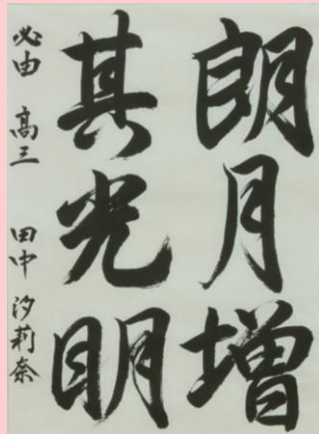 朗月増
其光明
必由 高三 田中 汐莉奈